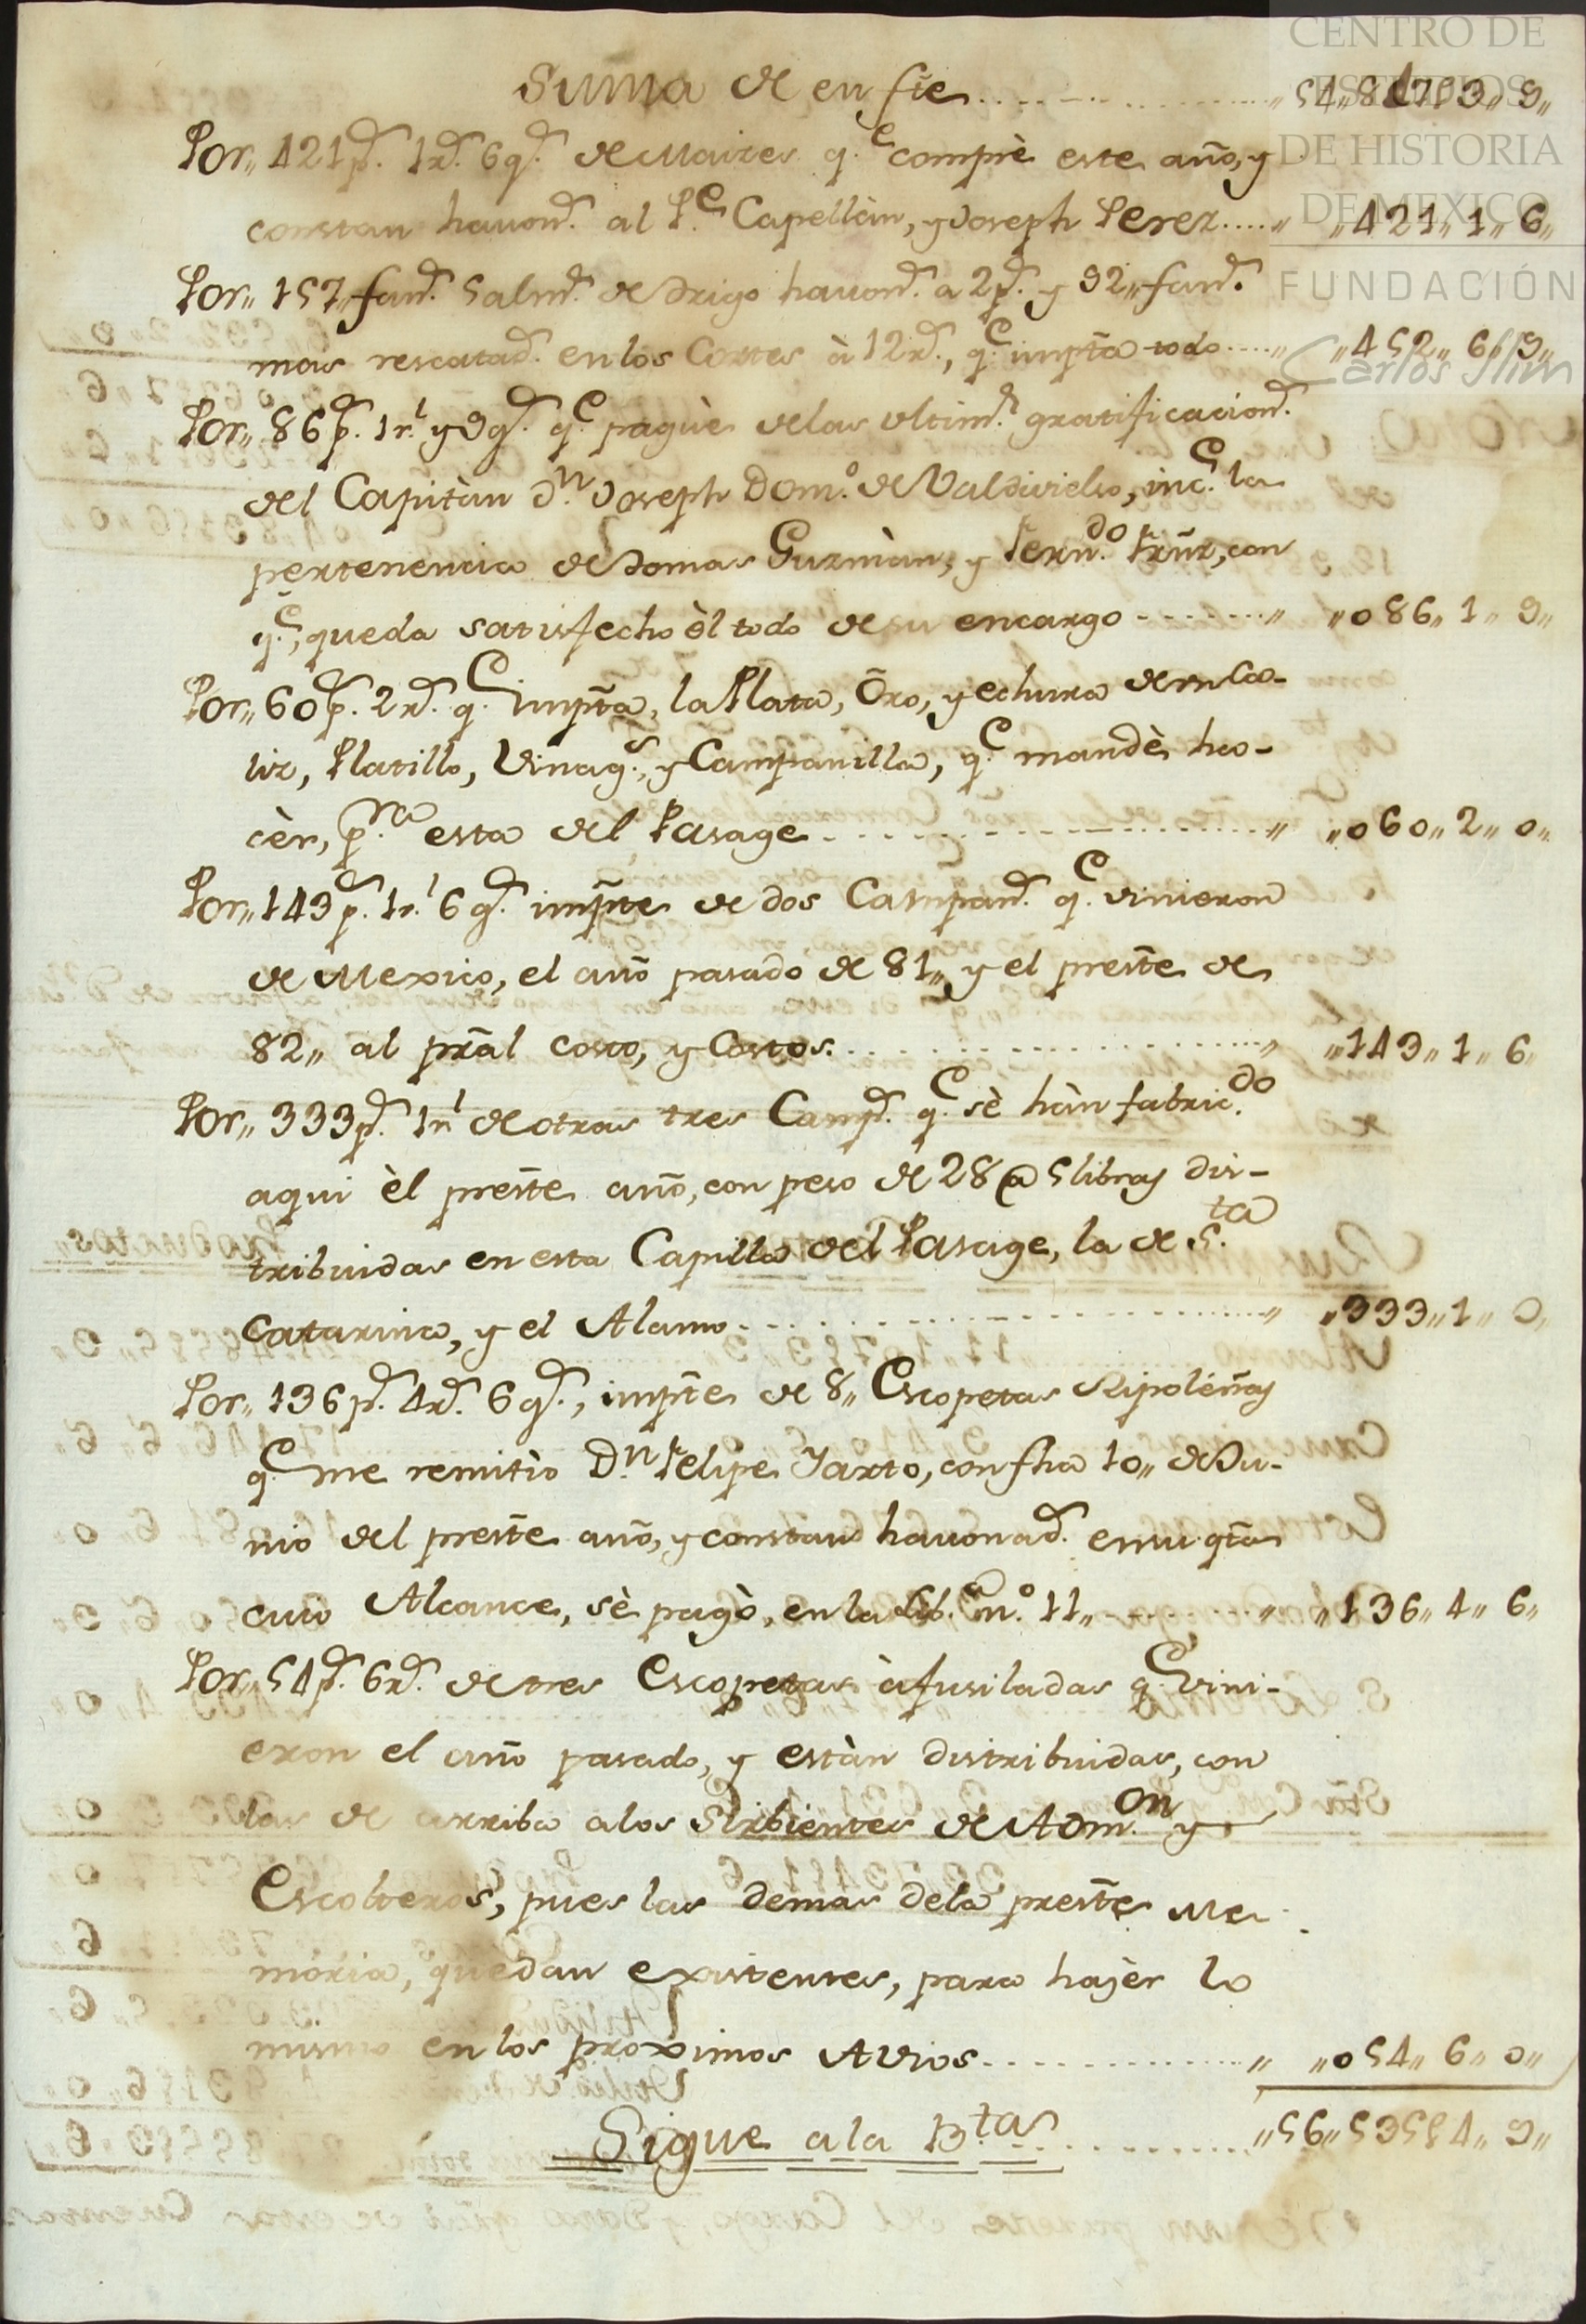 Suma de en fte ........ „54„847„3„9„
Por„ 421p.s 1r.s 6g.s de Maizes q.e comprè este año, y
constan havon.s al P.e Capellàn, y Joseph Perez..... „ „421„1„6„
Por„ 157„ fan.s 5 alm.s de trigo havon.s a 2p.s y 92„ fan.s
mas rescatad.s en los Cortes à 12r.s, q.e impta todo.... „ „452„6„9„
Por„ 86p.s 1r.l y 9g.s q.e paguè de las ultim.s gratificacion.s
del Capitàn d.n Joseph Dom.o de Valdivielso, inc.e la
pertenencia de tomas Guzmàn, y Fern.do Frñz, con
q.e, queda satisfecho èl todo de su encargo ....... „ „086„1„9„
Por„ 60p.s 2r.s q.e impta, la Plata, Oro, y echura de un Ca-
liz, Platillo, Vinag.s, y Campanilla, q.e mandè ha-
cèr, p.ra esta del Pasage ........ „ „060„2„0„
Por„ 143p.s 1r.l 6g.s impte de dos Campan.s q.e vinieron
de Mexico, el año pasado de 81„ y el preste de
82„ al pral costo, y Costos. ........ „ „143„1„6„
Por„ 333p.s 1r.l de otras tres Camp.s q.e sè hàn fabric.do
aqui èl preste año, con peso de 28 @ 5 libras dis-
tribuidas en esta Capilla del Pasage, la de S.ta
Catarina, y el Alamo ........ „ „333„1„0„
Por„ 136p.s 4r.s 6g.s, impte de 8„ Escopetas Ripoleñas
q.e me remitio D.n Felipe Yarto, con fha 10„ de Ju-
nio del preste año, y constan havonad.s en su qta
cuio Alcance, sè pagò, en la Lib.a n.o 11„ ........ „ „136„4„6„
Por„ 54p.s 6r.s de tres Escopetas àfusiladas q.e vini-
eron el año pasado, y estàn distribuidas, con
las de arriba a los Sirbientes de Adm.on y
Escolteros, pues las demas de la preste Me
moria, quedan existentes, para hazer lo
mismo en los proximos Avios ........ „ „054„6„0„
Sigue a la B.ta ........ „56„535„4„9„
CENTRO DE
ESTUDIOS
DE HISTORIA
DE MEXICO
FUNDACIÓN
Carlos Slim